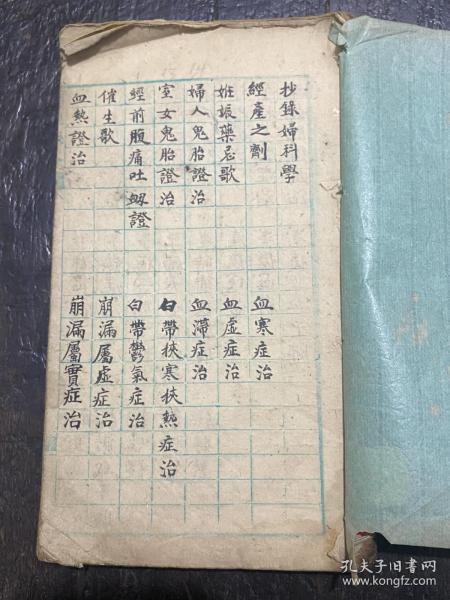 抄錄婦科學
經產之劑
妊娠藥忌歌
婦人鬼胎證治
室女鬼胎證治
經前腹痛吐衄證
催生歌
血熱證治
血寒症治
血虛症治
血滯症治
白帶挾寒挾熱症治
白帶鬱氣症治
崩漏屬虛症治
崩漏屬實症治
孔夫子旧书网
www.kongfz.com